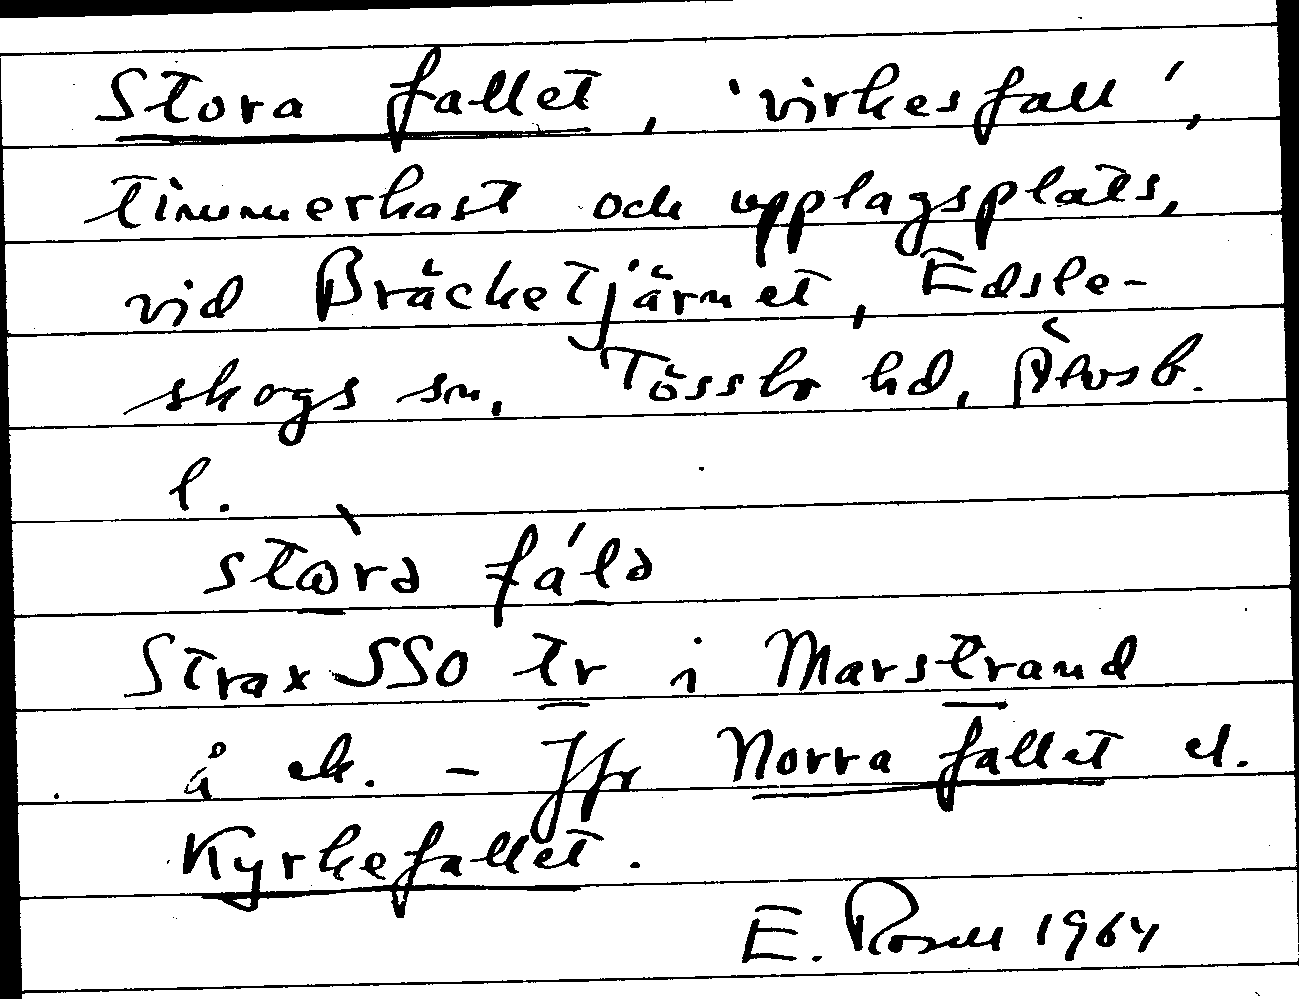 Stora fallet, 'virkesfall',
timmerkast och upplagsplats,
vid Bräcketjärnet, Edsle-
skogs sn, Tössbo hd, Älvsb.
l.
stὼrə fálə
Strax SSO tr i Marstrand
å ek. - Jfr Norra fallet el.
Kyrkefallet.
E. Rosell 1964